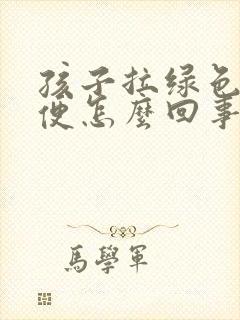 孩子拉绿色
便怎麼回事
馬學軍